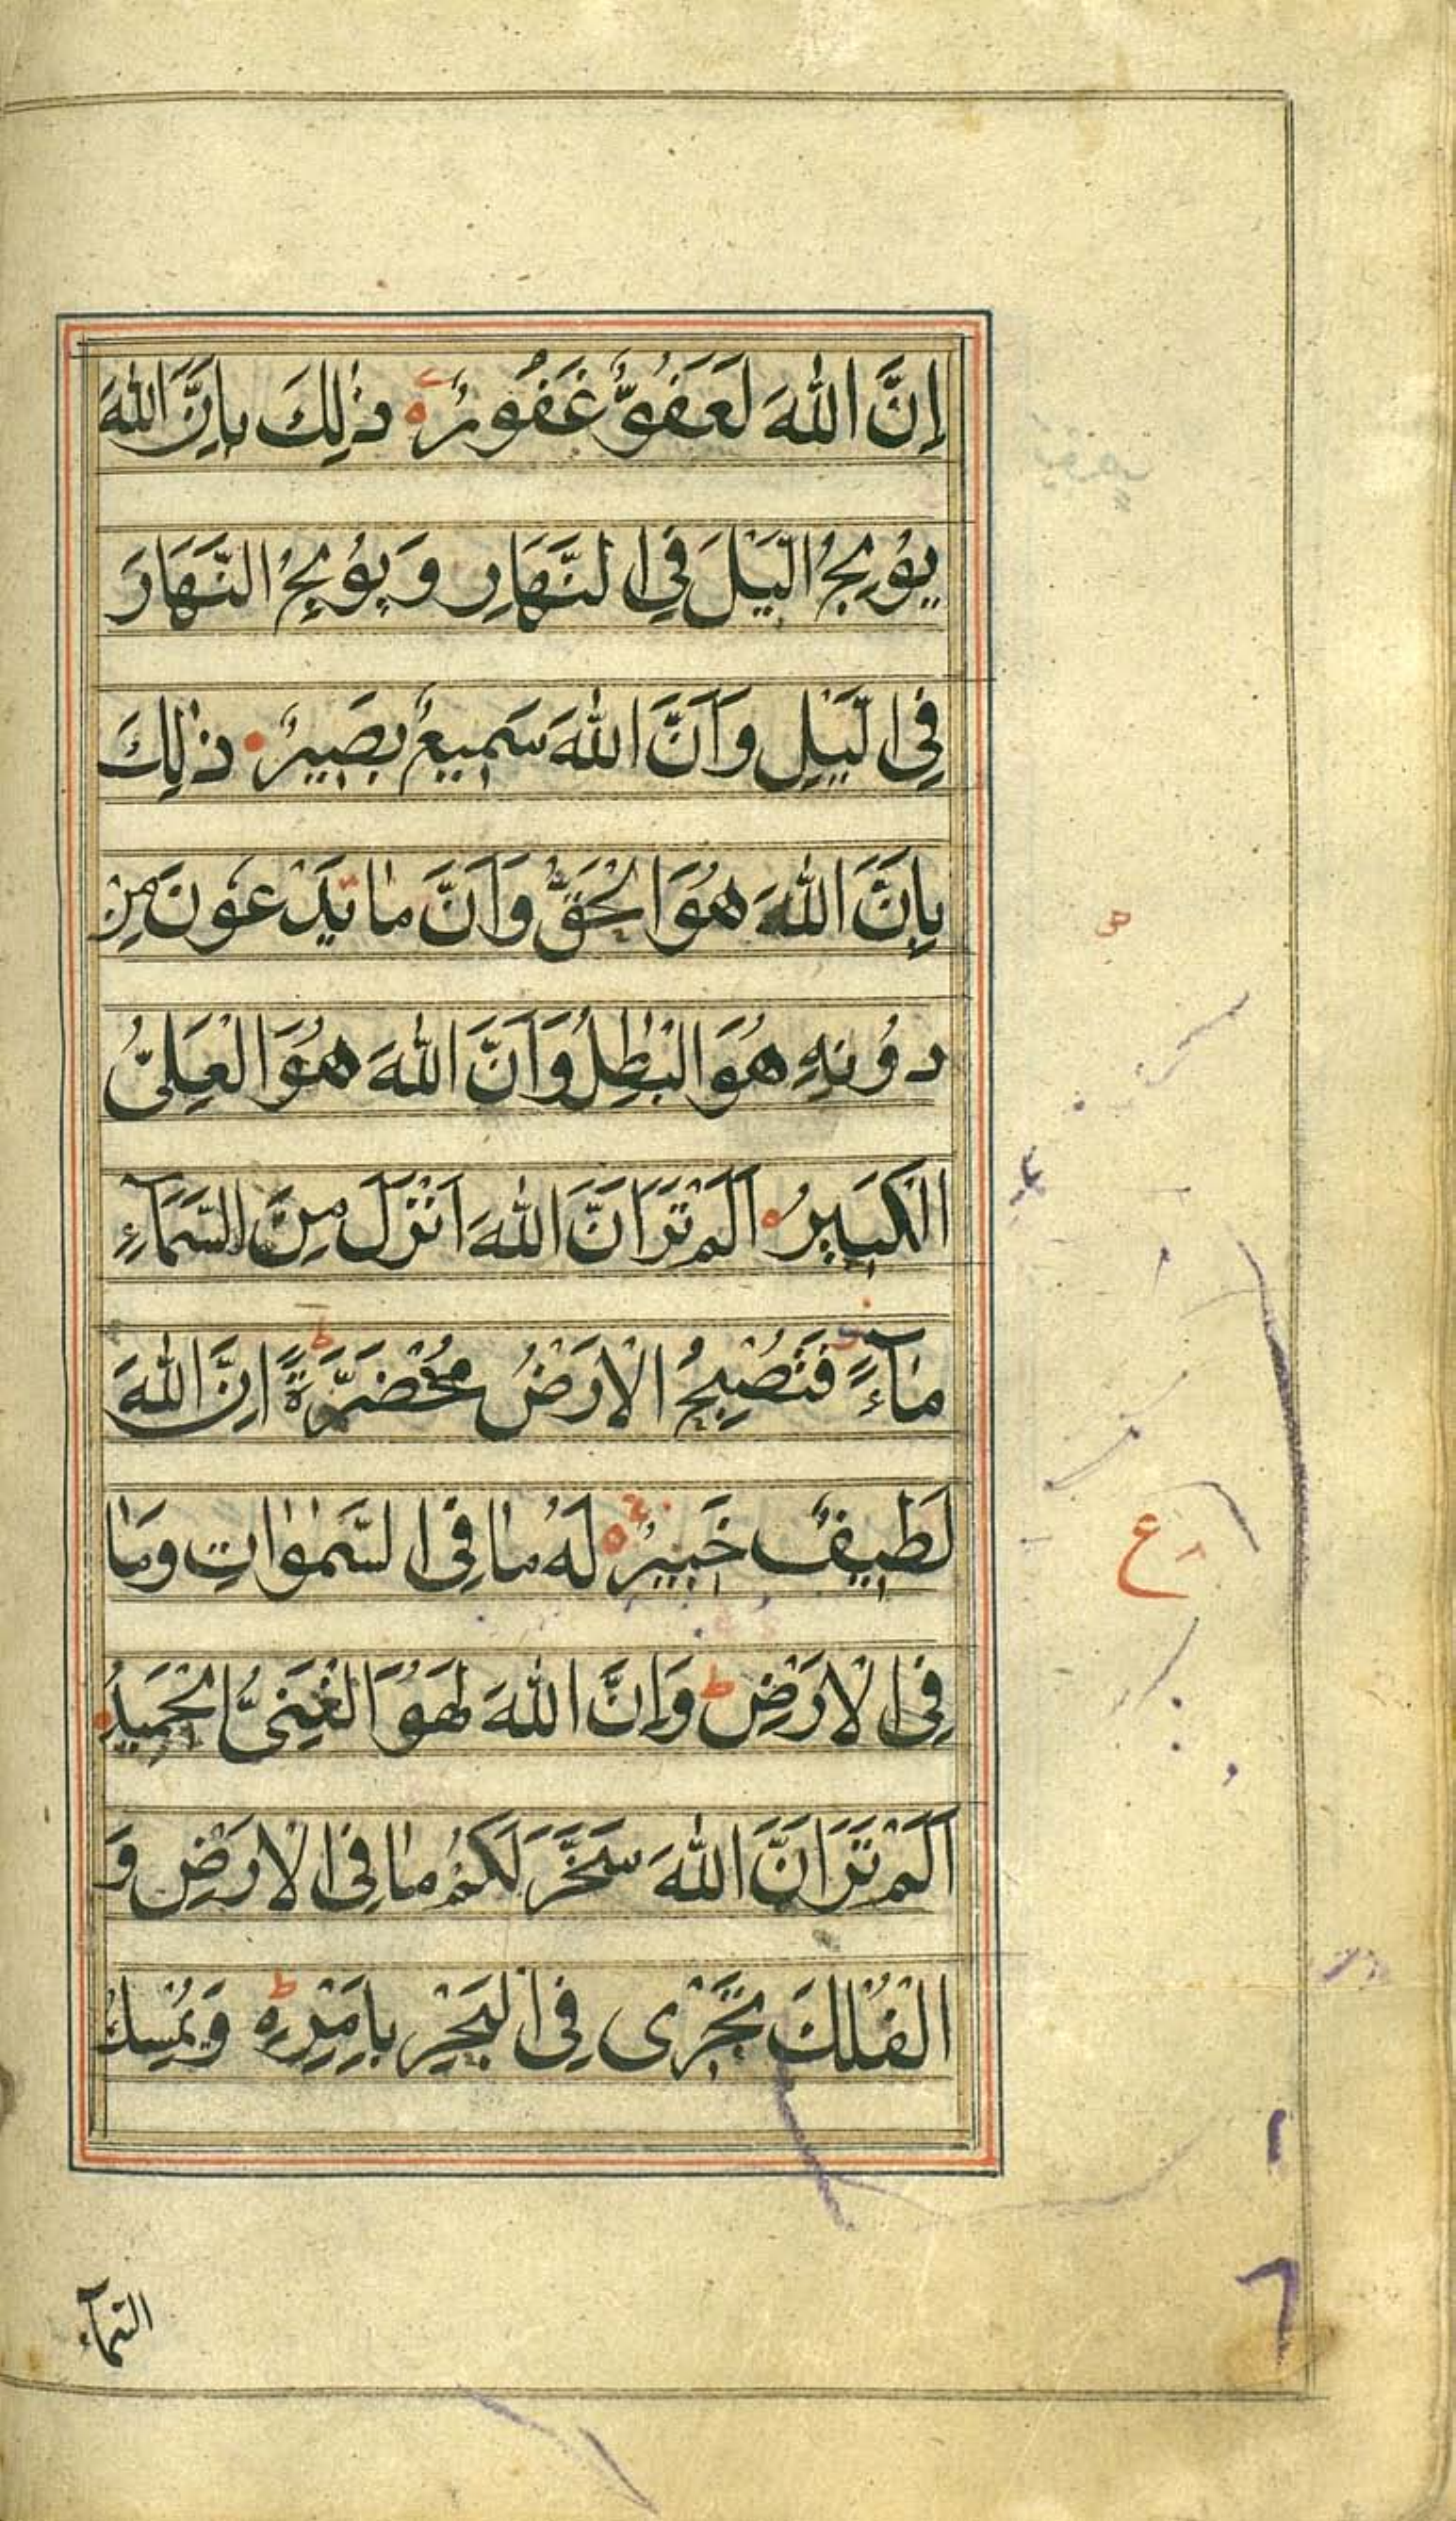 إِنَّ اللّٰهَ لَعَفُوٌّ غَفُورٌ ذٰلِكَ بِاَنَّ اللّٰهَ
يُولِجُ الَّيْلَ فِي النَّهَارِ وَيُولِجُ النَّهَارَ
فِي الَّيْلِ وَاَنَّ اللّٰهَ سَمِيعٌ بَصِيرٌ ذٰلِكَ
بِاَنَّ اللّٰهَ هُوَ الْحَقُّ وَاَنَّ مَا يَدْعُونَ مِنْ
دُونِهِ هُوَ الْبٰطِلُ وَاَنَّ اللّٰهَ هُوَ الْعَلِىُّ
الْكَبِيرُ اَلَمْ تَرَ اَنَّ اللّٰهَ اَنْزَلَ مِنَ السَّمَآءِ
مَآءً فَتُصْبِحُ الْاَرْضُ مُخْضَرَّةً اِنَّ اللّٰهَ
لَطِيفٌ خَبِيرٌ لَهُ مَا فِي السَّمٰوٰاتِ وَمَا
فِي الْاَرْضِ ط وَاِنَّ اللّٰهَ لَهُوَ الْغَنِىُّ الْحَمِيدُ
اَلَمْ تَرَ اَنَّ اللّٰهَ سَخَّرَ لَكُمْ مَا فِي الْاَرْضِ وَ
الْفُلْكَ تَجْرِى فِي الْبَحْرِ بِاَمْرِهِ ط وَيُمْسِكُ
السَّمَآءَ
ع